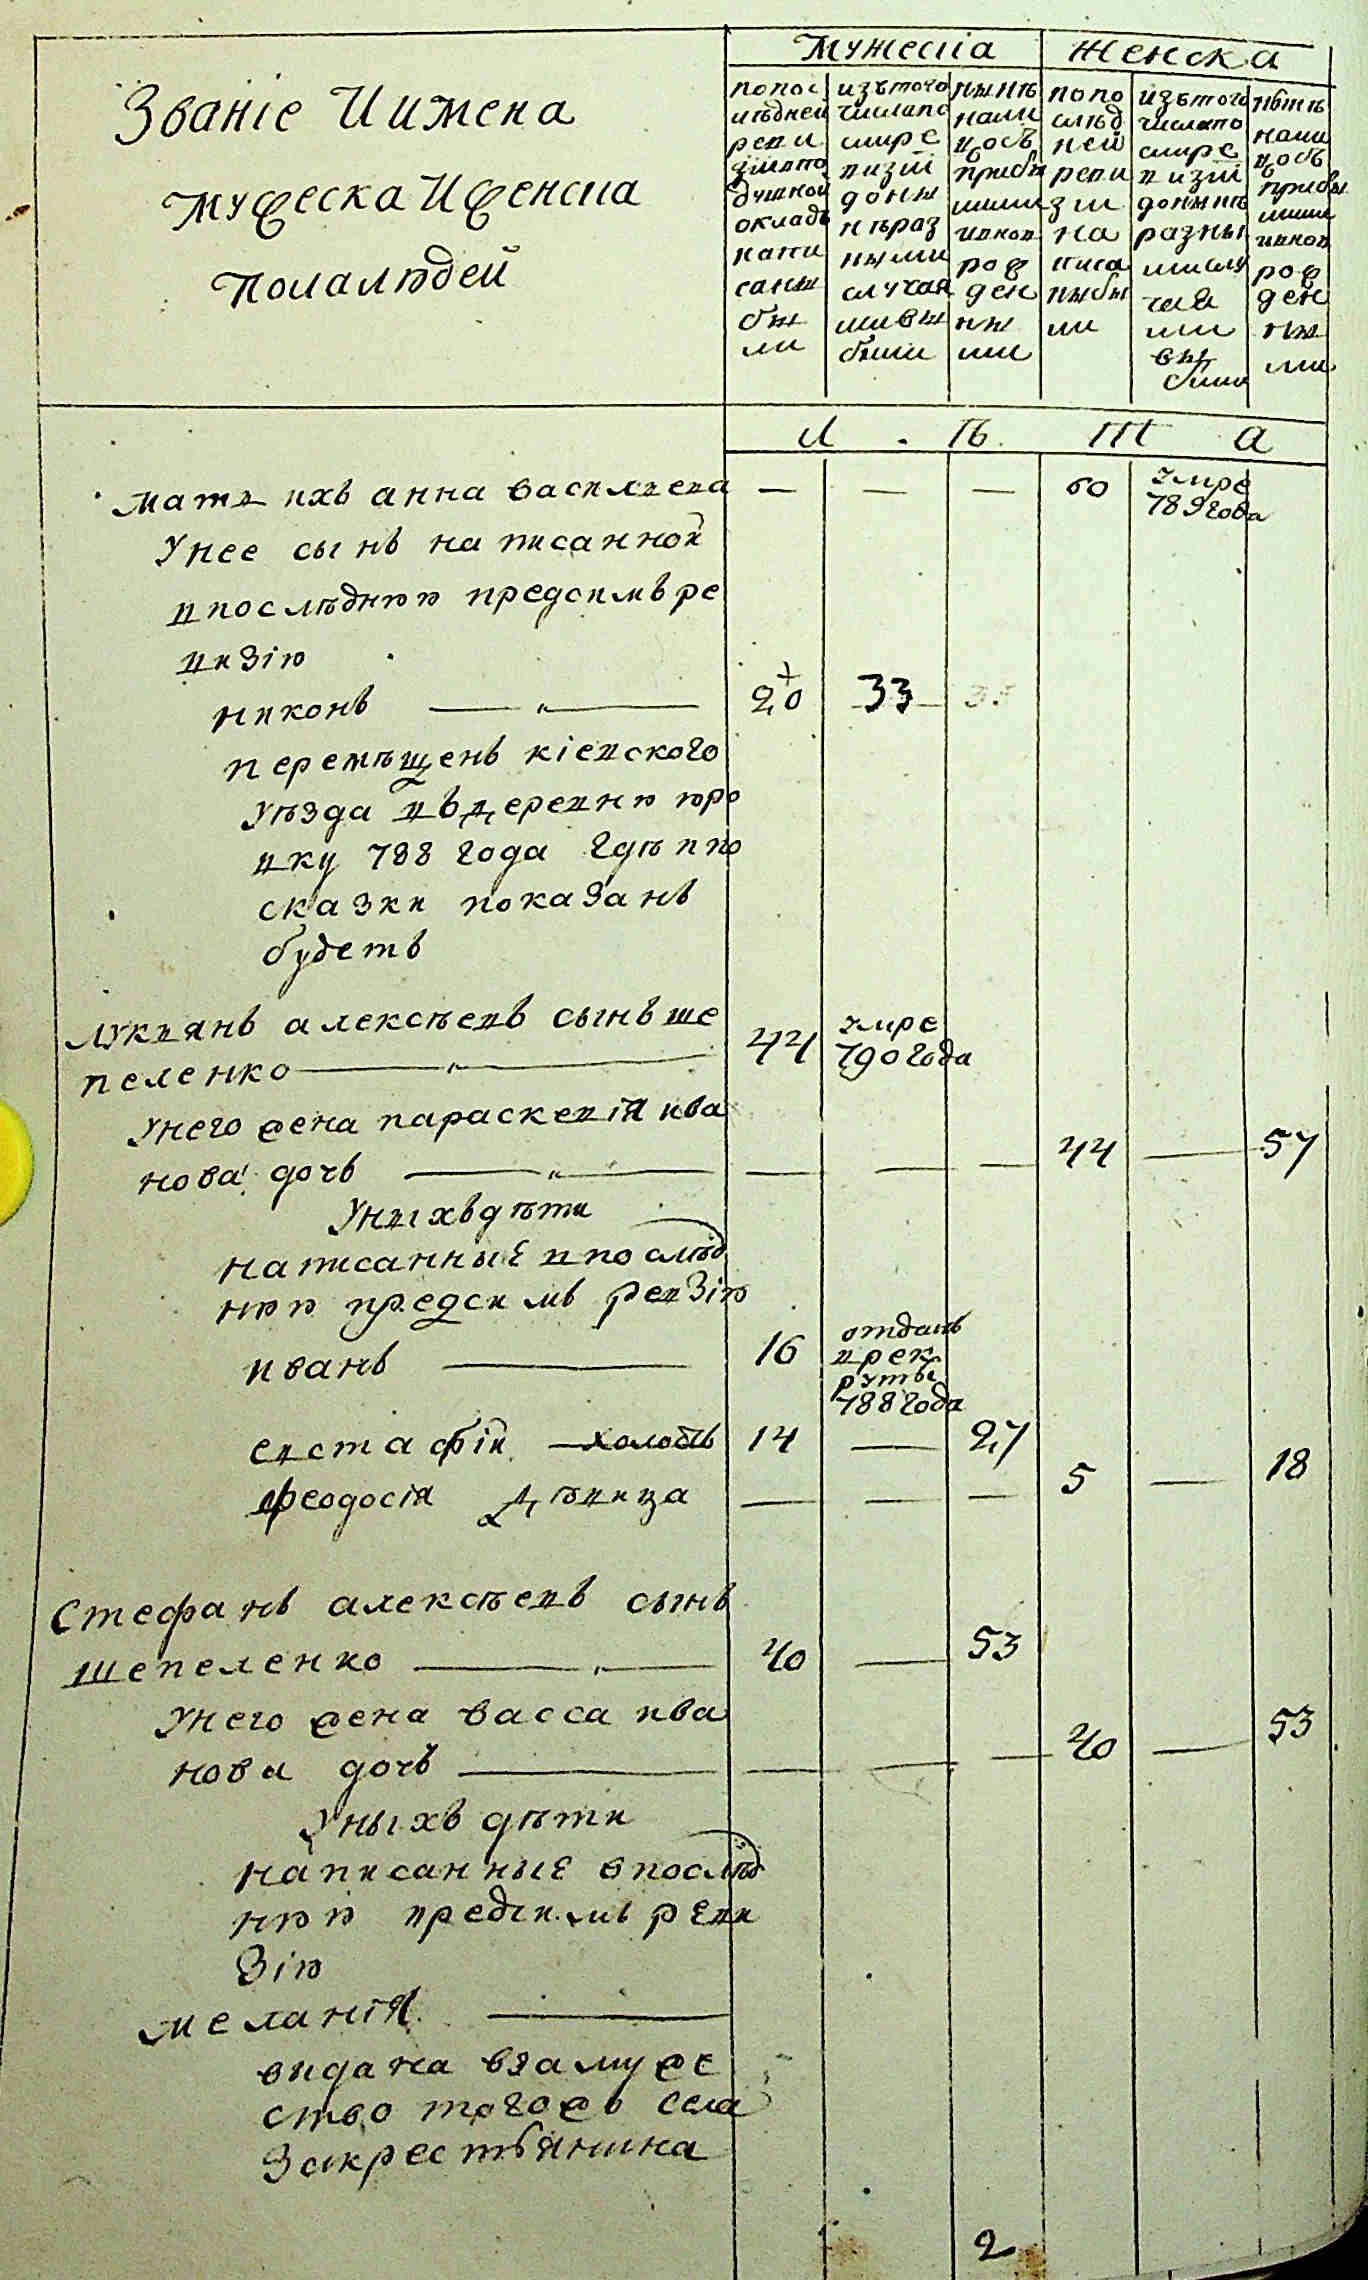 Званіе И имена
мужеска И женска
пола людей
мужеска
женска
попос
лѣдней
реви
зіи по
душной
окладъ
напи
саны
бы
ли
изътого
числапо
слѣ ре
визіи
доны
нѣраз
ными
случая
мивы
были
нынѣ
нали
цосъ
прибы
лыми
иновъ
рож
ден
ны
ми
попо
слѣд
ней
реви
зіи
на
писа
ныбы
ли
изътого
числапо
слѣ ре
визіи
донынѣ
разны
мислу
чая
ми
вы
были
нынѣ
нали
цосъ
прибы
лыми
иновъ
рож
ден
ны
ми
л ѣ т а
мать ихъ анна васильева — — — 60 умре
789года
Унее сынъ написанной
впослѣднюю предсимъ ре
визію
никонъ — „ — 20 33
перемѣщенъ кіевского
уѣзда въ деревню юро
вку 788 года гдѣ впо
сказки показанъ
будетъ
лукьянъ алексѣевъ сынъ ше
пеленко — „ — 44 умре
790года
Унего жена параскевія ива
нова дочь — „ — — — — 44 — 57
Уныхъдѣти
написанные впослѣд
нюю предсимъ ревзію
иванъ — 16 отданъ
врек
руты
788года
евстафіи — холостъ 14 — 27
феодосія дѣвица — — — 5 — 18
Стефанъ алексѣевъ сынъ
шепеленко — „ — 40 — 53
Унего жена васса ива
нова дочь — — — — 40 — 53
Уныхъ дѣти
написанные впослѣд
нюю предсимъ реви
зію
меланія —
видана взамуже
ство тогожъ села
закрестьянина
2